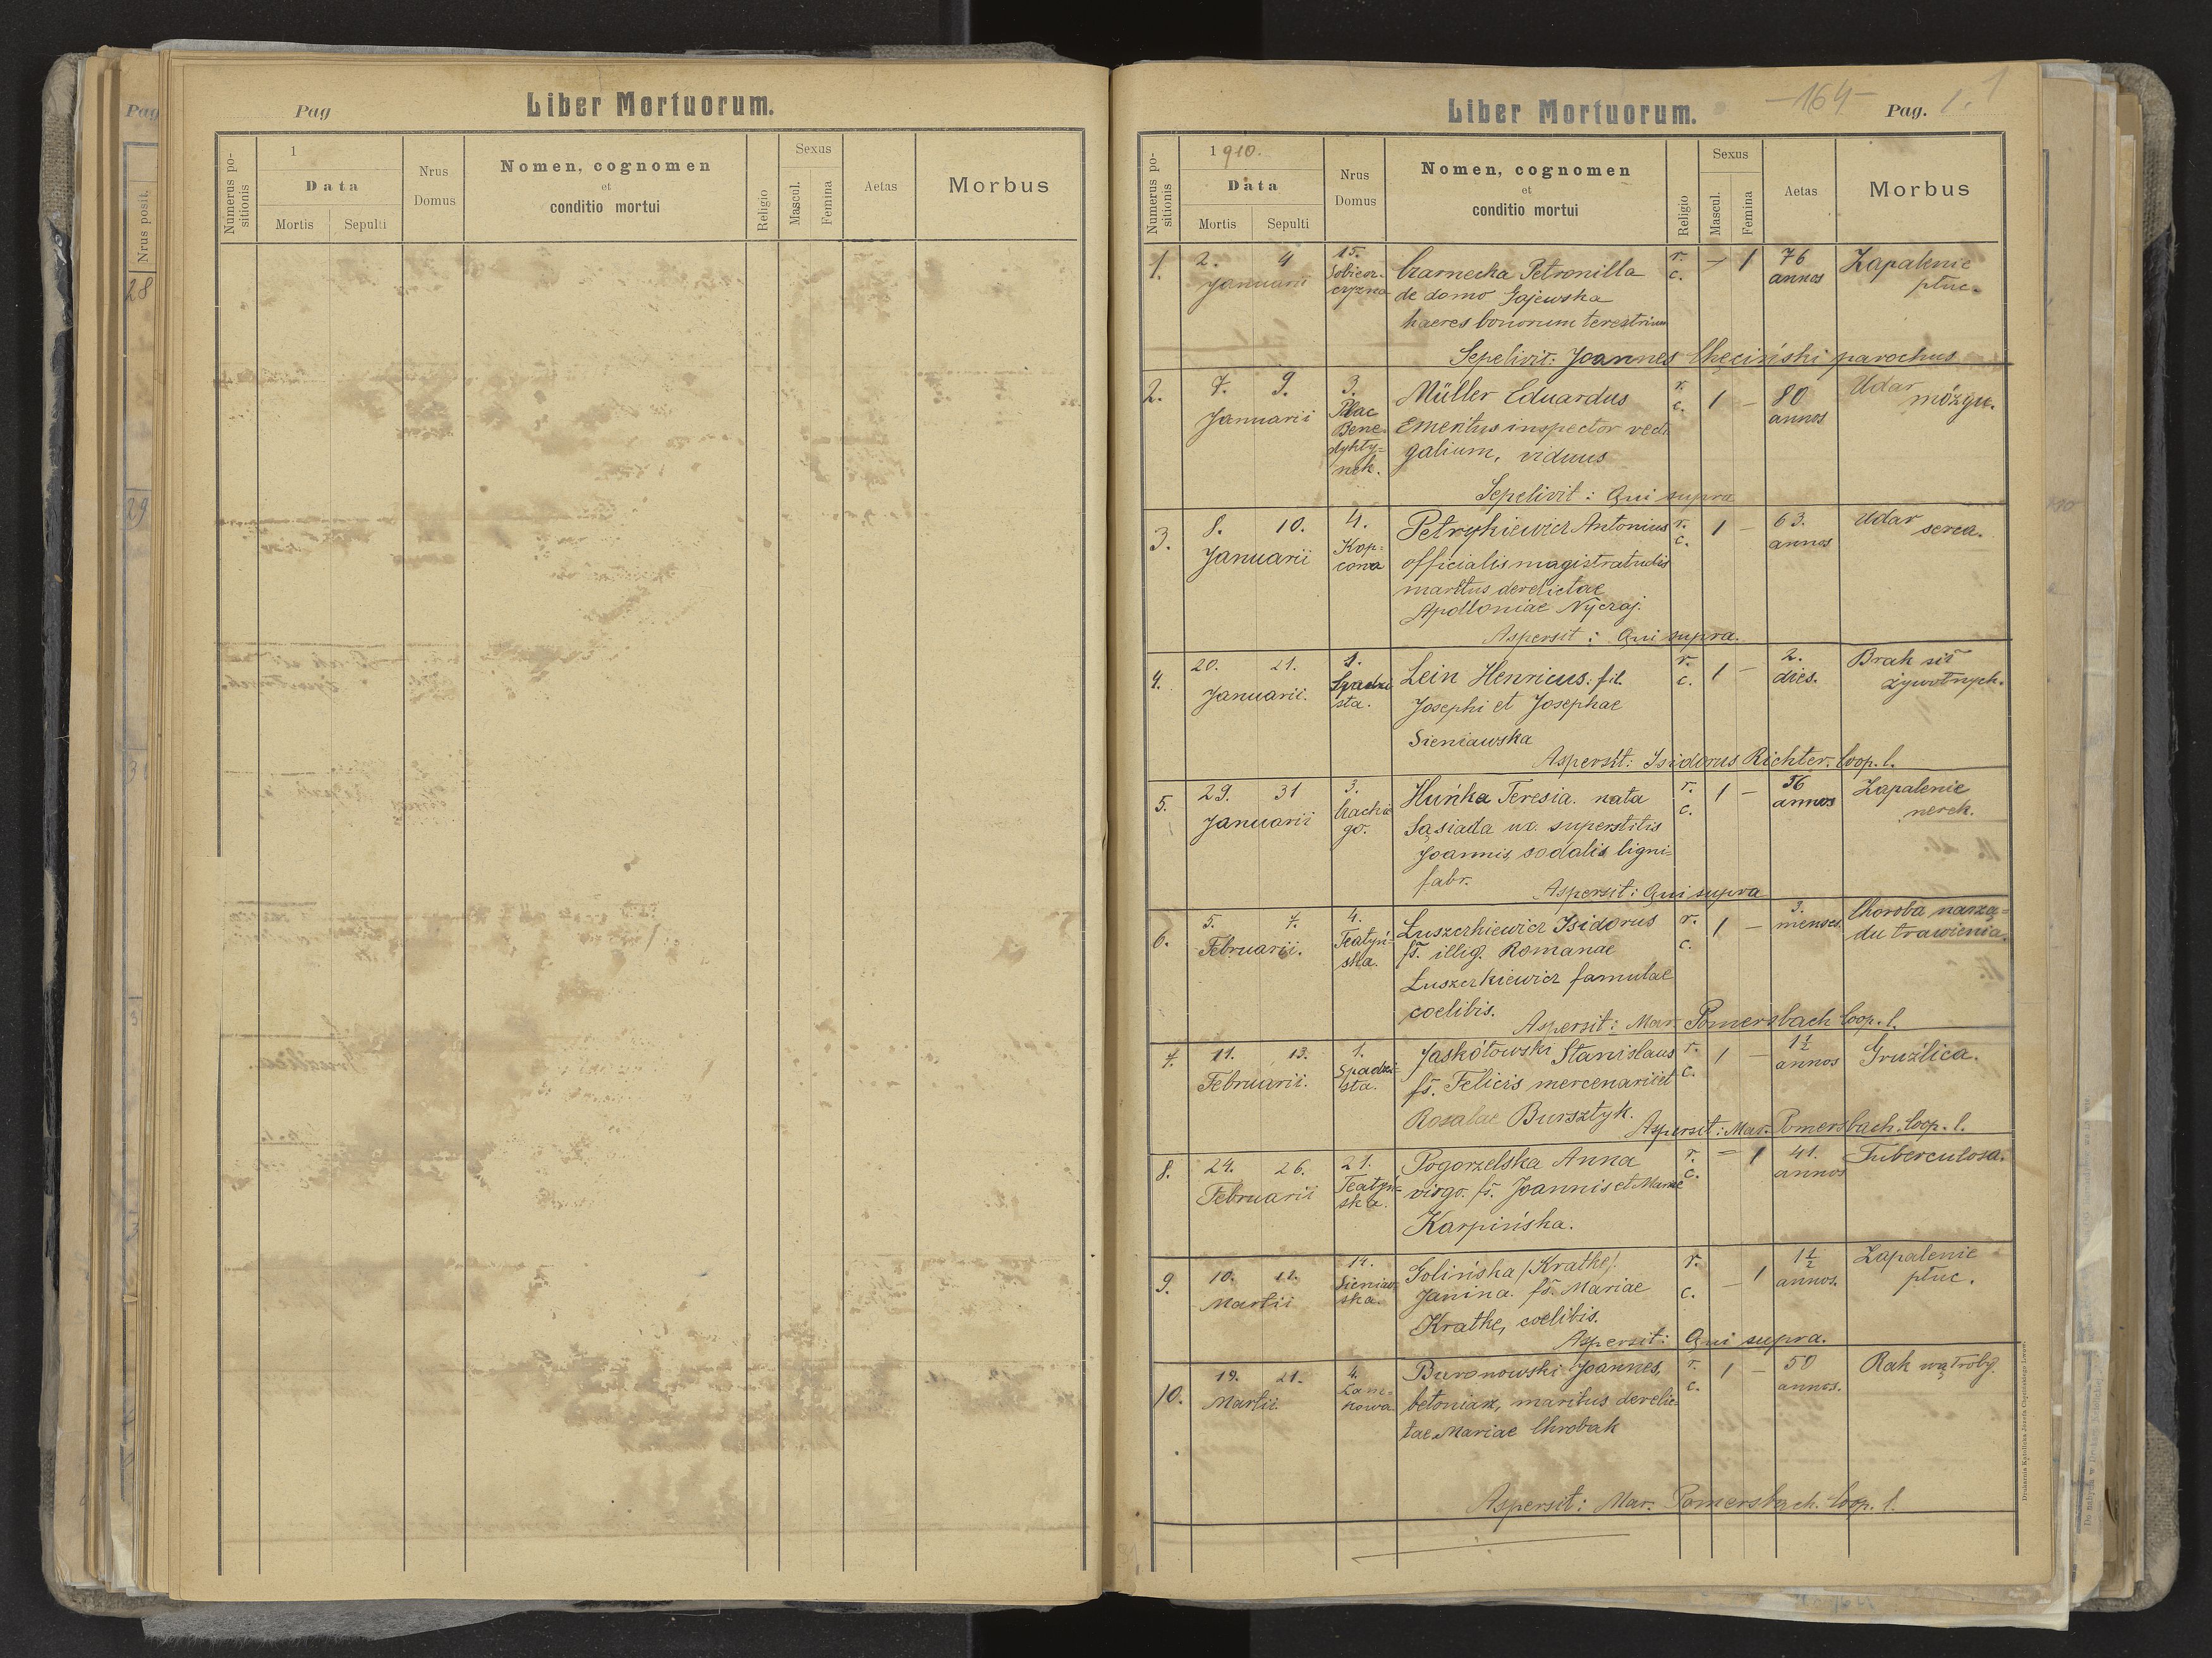 Pag
Liber Mortuorum.
Numerus po-
sitionis
1
Data
Mortis Sepulti
Nrus
Domus
Nomen, cognomen
et
conditio mortui
Religio
Sexus
Mascul.
Femina
Aetas
Morbus
Pag
Nrus posit.
28
29
Liber Mortuorum.
-164-
Pag. 1. 1
Numerus po-
sitionis
1910.
Data
Mortis Sepulti
Nrus
Domus
Nomen, cognomen
et
conditio mortui
Religio
Sexus
Mascul.
Femina
Aetas
Morbus
1. 2. 4 Januarii
15.
Czarnecka Petronilla
de domo Gajewska
haeres bonorum terestrium
r. c. - 1
76 annos
Zapalenie
płuc.
Sepelivit: Joannes Chęciński parochus
2. 7. 9. Januarii
3.
Plac
Bene-
dykty=
nek.
Müller Eduardus
Emeritus inspector vecti
galium, viduus
r. c. 1 -
80 annos
Udar
mózgu.
Sepelivit: Qui supra
3. 8. 10. Januarii
4.
Kop=
cowa
Petrykiewicz Antonius
officialis magistratudis
maritus derelictae
Apolloniae Nyczaj.
r. c. 1 -
63. annos
Udar
serca.
Aspersit: Qui supra.
4. 20. 21. Januarii.
1.
Spadzi
sta.
Lein Henricus: fil.
Josephi et Josephae
Sieniawska
r. c. 1 -
2. dies.
Brak sił
żywotnych.
Aspersit: Isidorus Richter. Coop. l.
5. 29. 31 Januarii
3.
Czackie
go.
Huńka Teresia. nata
Sąsiada ux. superstitis
Joannis, sodalis ligni=
fabr.
r. c. 1 -
56 annos
Zapalenie
nerek.
Aspersit: Qui supra
6. 5. 7. Februarii.
4.
Teatyń=
ska.
Łuszczkiewicz Isidorus
fs. illig. Romanae
Łuszczkiewicz famulae
coelibis.
r. c. 1 -
3. menses.
Choroba narzą=
du trawienia.
Aspersit: Mar. Pomersbach Coop. l.
7. 11. 13. Februarii.
1.
Spadzi-
sta.
Jaskółowski Stanislaus
fs. Felicis mercenarii et
Rosaliae Bursztyk.
r. c. 1 -
1½ annos
Gruźlica.
Aspersit: Mar. Pomersbach. Coop. l.
8. 24. 26. Februarii
21.
Teatyń=
ska.
Pogorzelska Anna
virgo. fs. Joannis et Mariae
Karpińska.
r. c. = 1
41. annos
Tuberculosa.
9. 10. 12. Martii
14.
Sieniaw
ska.
Golińska /Krathe/
Janina. fs. Mariae
Krathe, coelibis.
r. c. - 1
1½ annos.
Zapalenie
płuc.
Aspersit: Qui supra.
10. 19. 21. Martii
4.
Zam=
kowa
Buronowski Joannes,
betoniarz, maritus derelic=
tae Mariae Chrobak
r. c. 1 -
50 annos.
Rak wątroby.
Aspersit: Mar. Pomersbach. Coop. l.